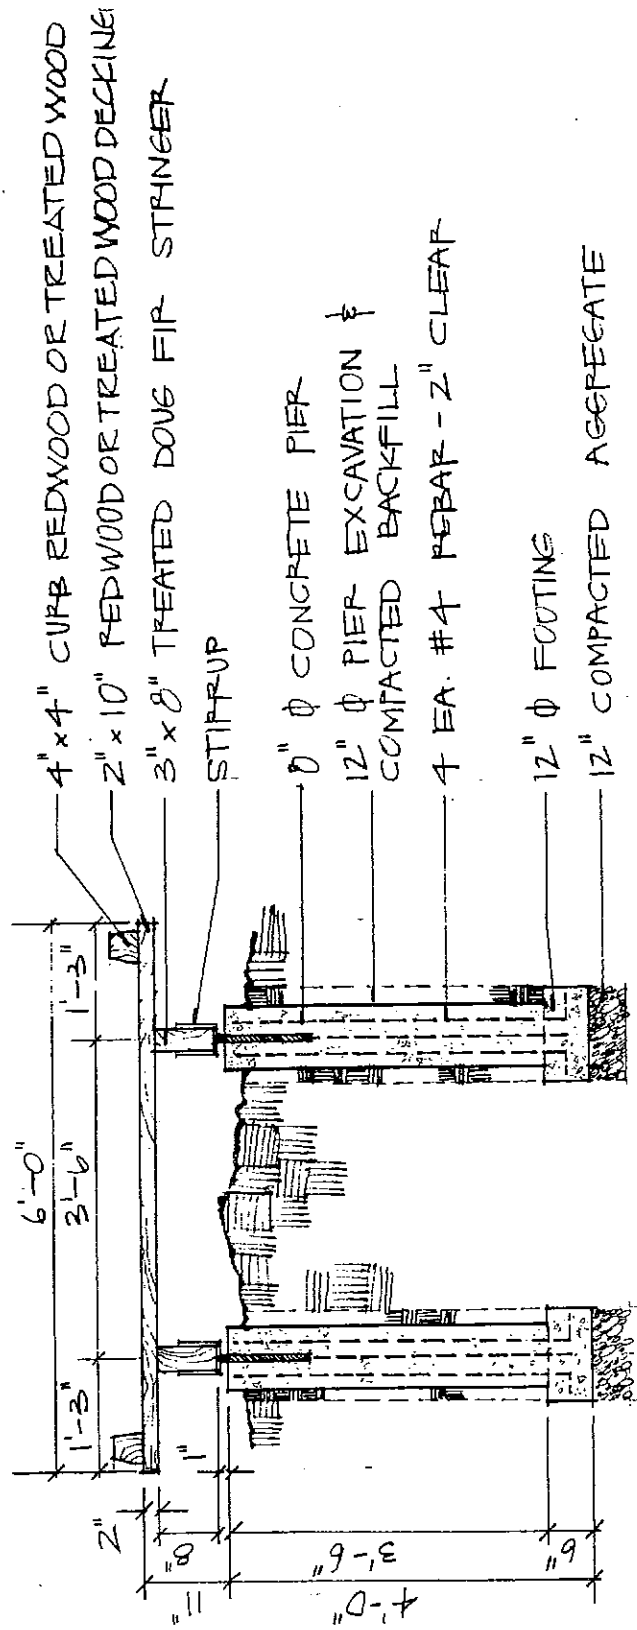 4" x 4" CURB REDWOOD OR TREATED WOOD
2" x 10" REDWOOD OR TREATED WOOD DECKING
3" x 8" TREATED DOUG FIR STRINGER
STIRRUP
8" ϕ CONCRETE PIER
12" ϕ PIER EXCAVATION &
COMPACTED BACKFILL
4 EA. #4 REBAR - 2" CLEAR
12" ϕ FOOTING
12" COMPACTED AGGREGATE
6'-0"
1'-3"
3'-6"
1'-3"
2"
8"
1"
11"
3'-6"
6"
4'-0"